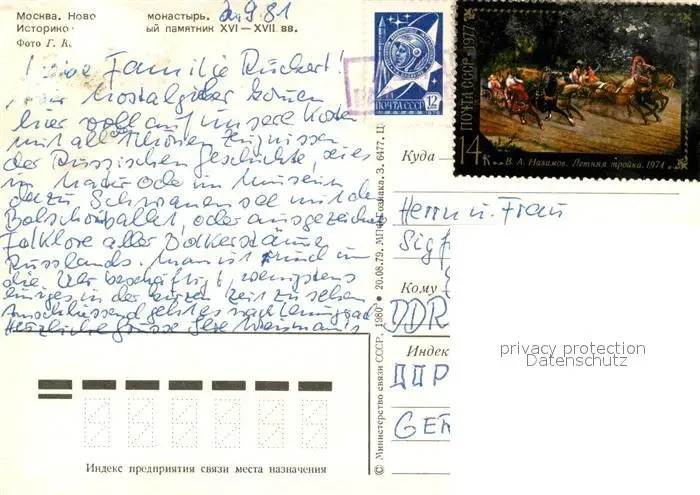 Москва. Ново монастырь.
2.9.81
Историко- ый памятник XVI—XVII вв.
Фото Г. К.
Familie Rückert!
Nostalgiker können
hier voll auf unsere Kosten
mit all schönen Zeugnissen
der Russischen Geschichte, sei es
in Natur od. im Museum
dazu Schwanensee mit dem
Bolschoiballet, oder ausgezeichnete
Folklore aller Volkerstämme
Russlands. Man ist rund um
die Uhr beschäftigt, wenigstens
einiges in der kurzen Zeit zu sehen
Anschliessend geht es nach Leningrad
Herzliche Grüsse Ihre
ПОЧТА СССР 12
ПОЧТА СССР · 1977
14 к
В. А. Налимов. Летняя тройка. 1974
Куда
Herrn u. Frau
Sigf
Кому
DDR
Индек
ДДР
GER
© Министерство связи СССР, 1980 • 20.08.79. МПФГ Гознака. З. 6477. Ц
privacy protection
Datenschutz
Индекс предприятия связи места назначения